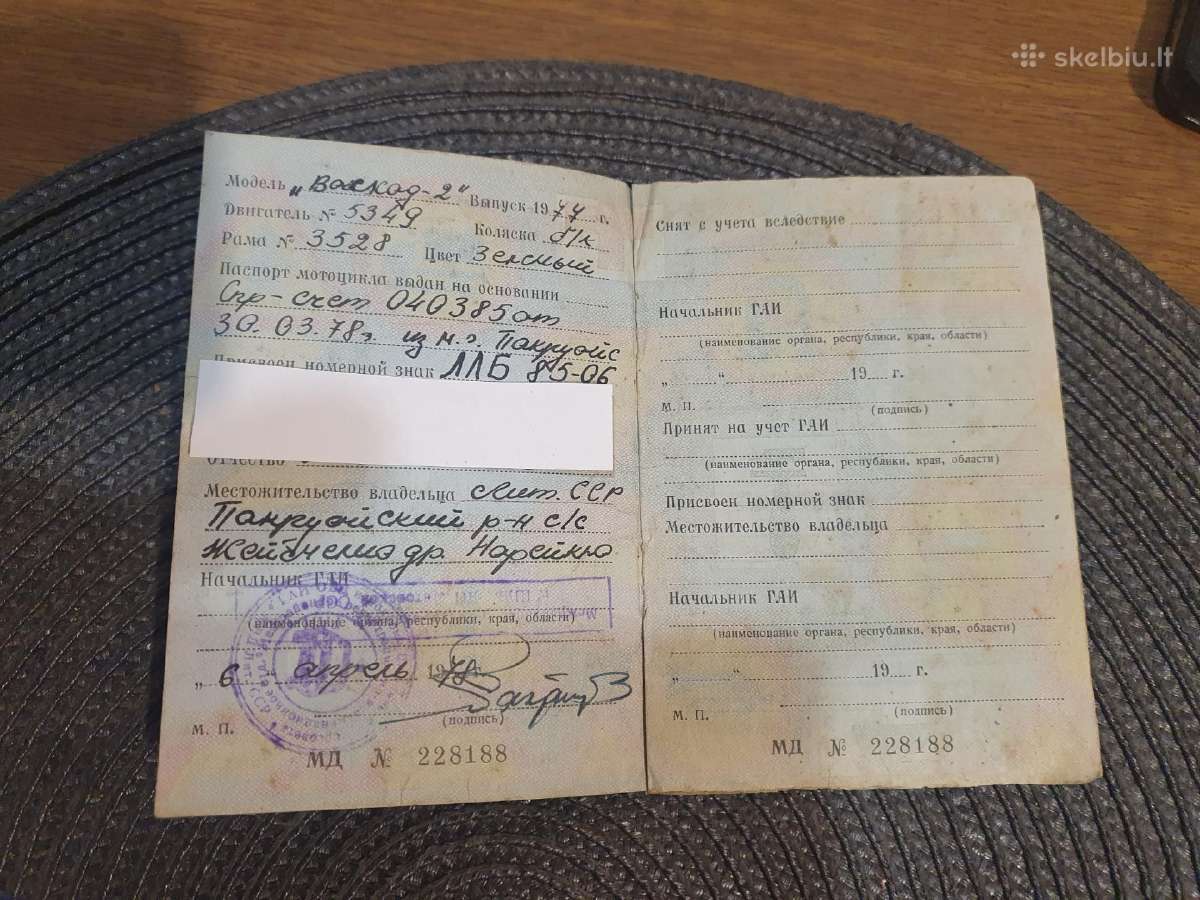 skelbiu.lt
Модель „Васход-2" Выпуск 1977 г.
Двигатель № 5349 Коляска б/к
Рама № 3528 Цвет Зеленый
Паспорт мотоцикла выдан на основании
Спр-счет 040385 от
30.03.78г. из м.г. Пакруойс
Присвоен номерной знак ЛЛБ 85-06
Отчество
Местожительство владельца Лит. ССР
Пакруойский р-н с/с
др.
Начальник ГАИ
(наименование органа, республики, края, области)
„ 6 " апрель 1978 г.
(подпись)
М. П.
МД № 228188
Снят с учета вследствие
Начальник ГАИ
(наименование органа, республики, края, области)
„ “ 19 г.
М. П. (подпись)
Принят на учет ГАИ
(наименование органа, республики, края, области)
Присвоен номерной знак
Местожительство владельца
Начальник ГАИ
(наименование органа, республики, края, области)
„ “ 19 г.
М. П. (подпись)
МД № 228188